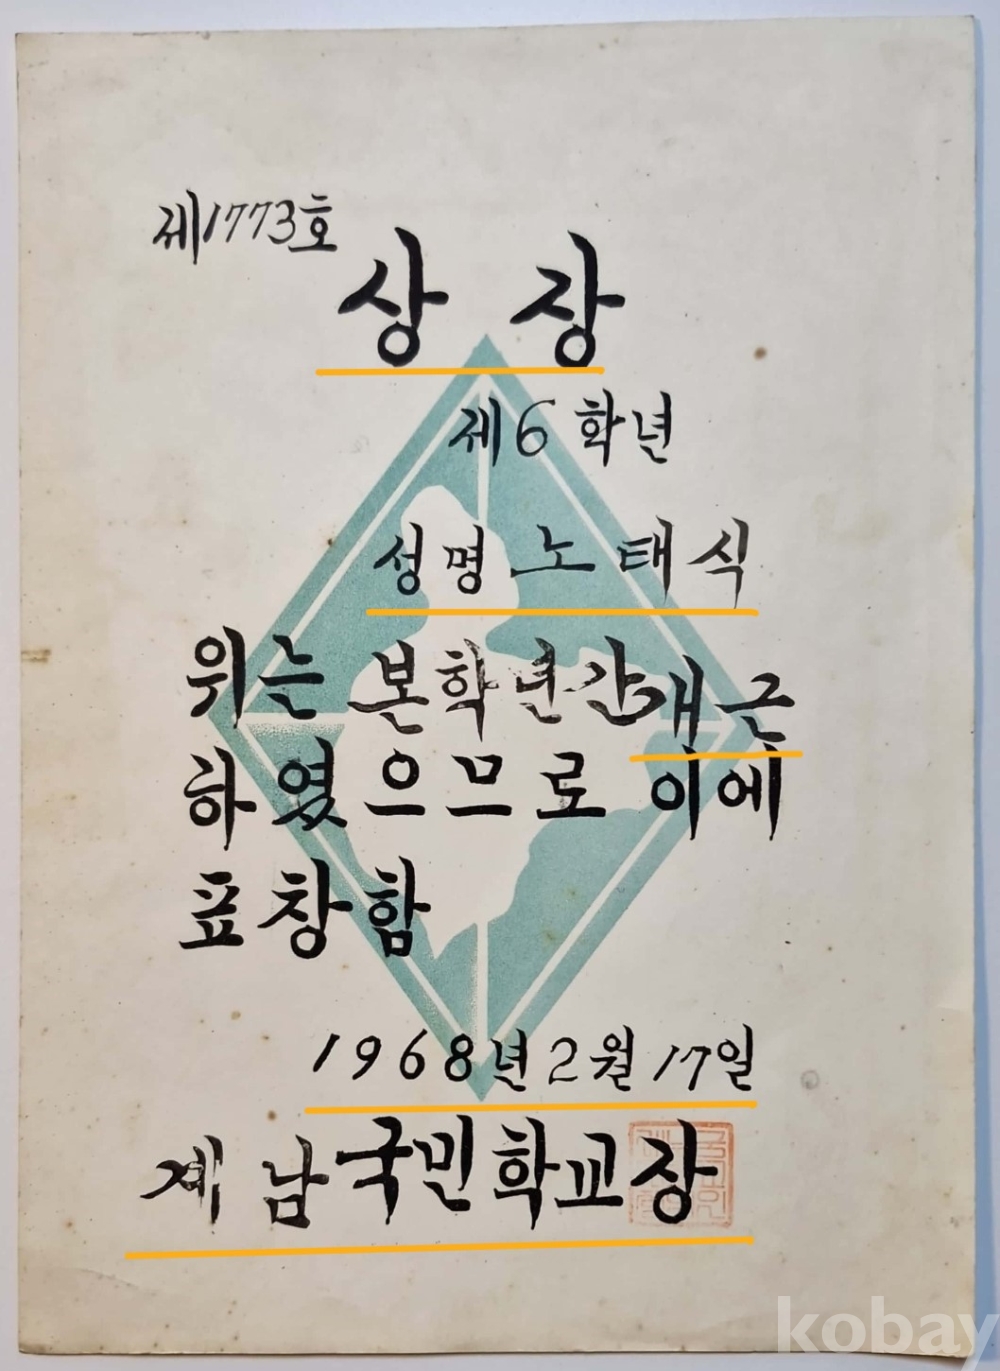 제1773호
상 장
제6학년
성명 노태식
위는 본학년간 개근
하였으므로 이에
표창함
1968년 2월 17일
계남국민학교장
kobay